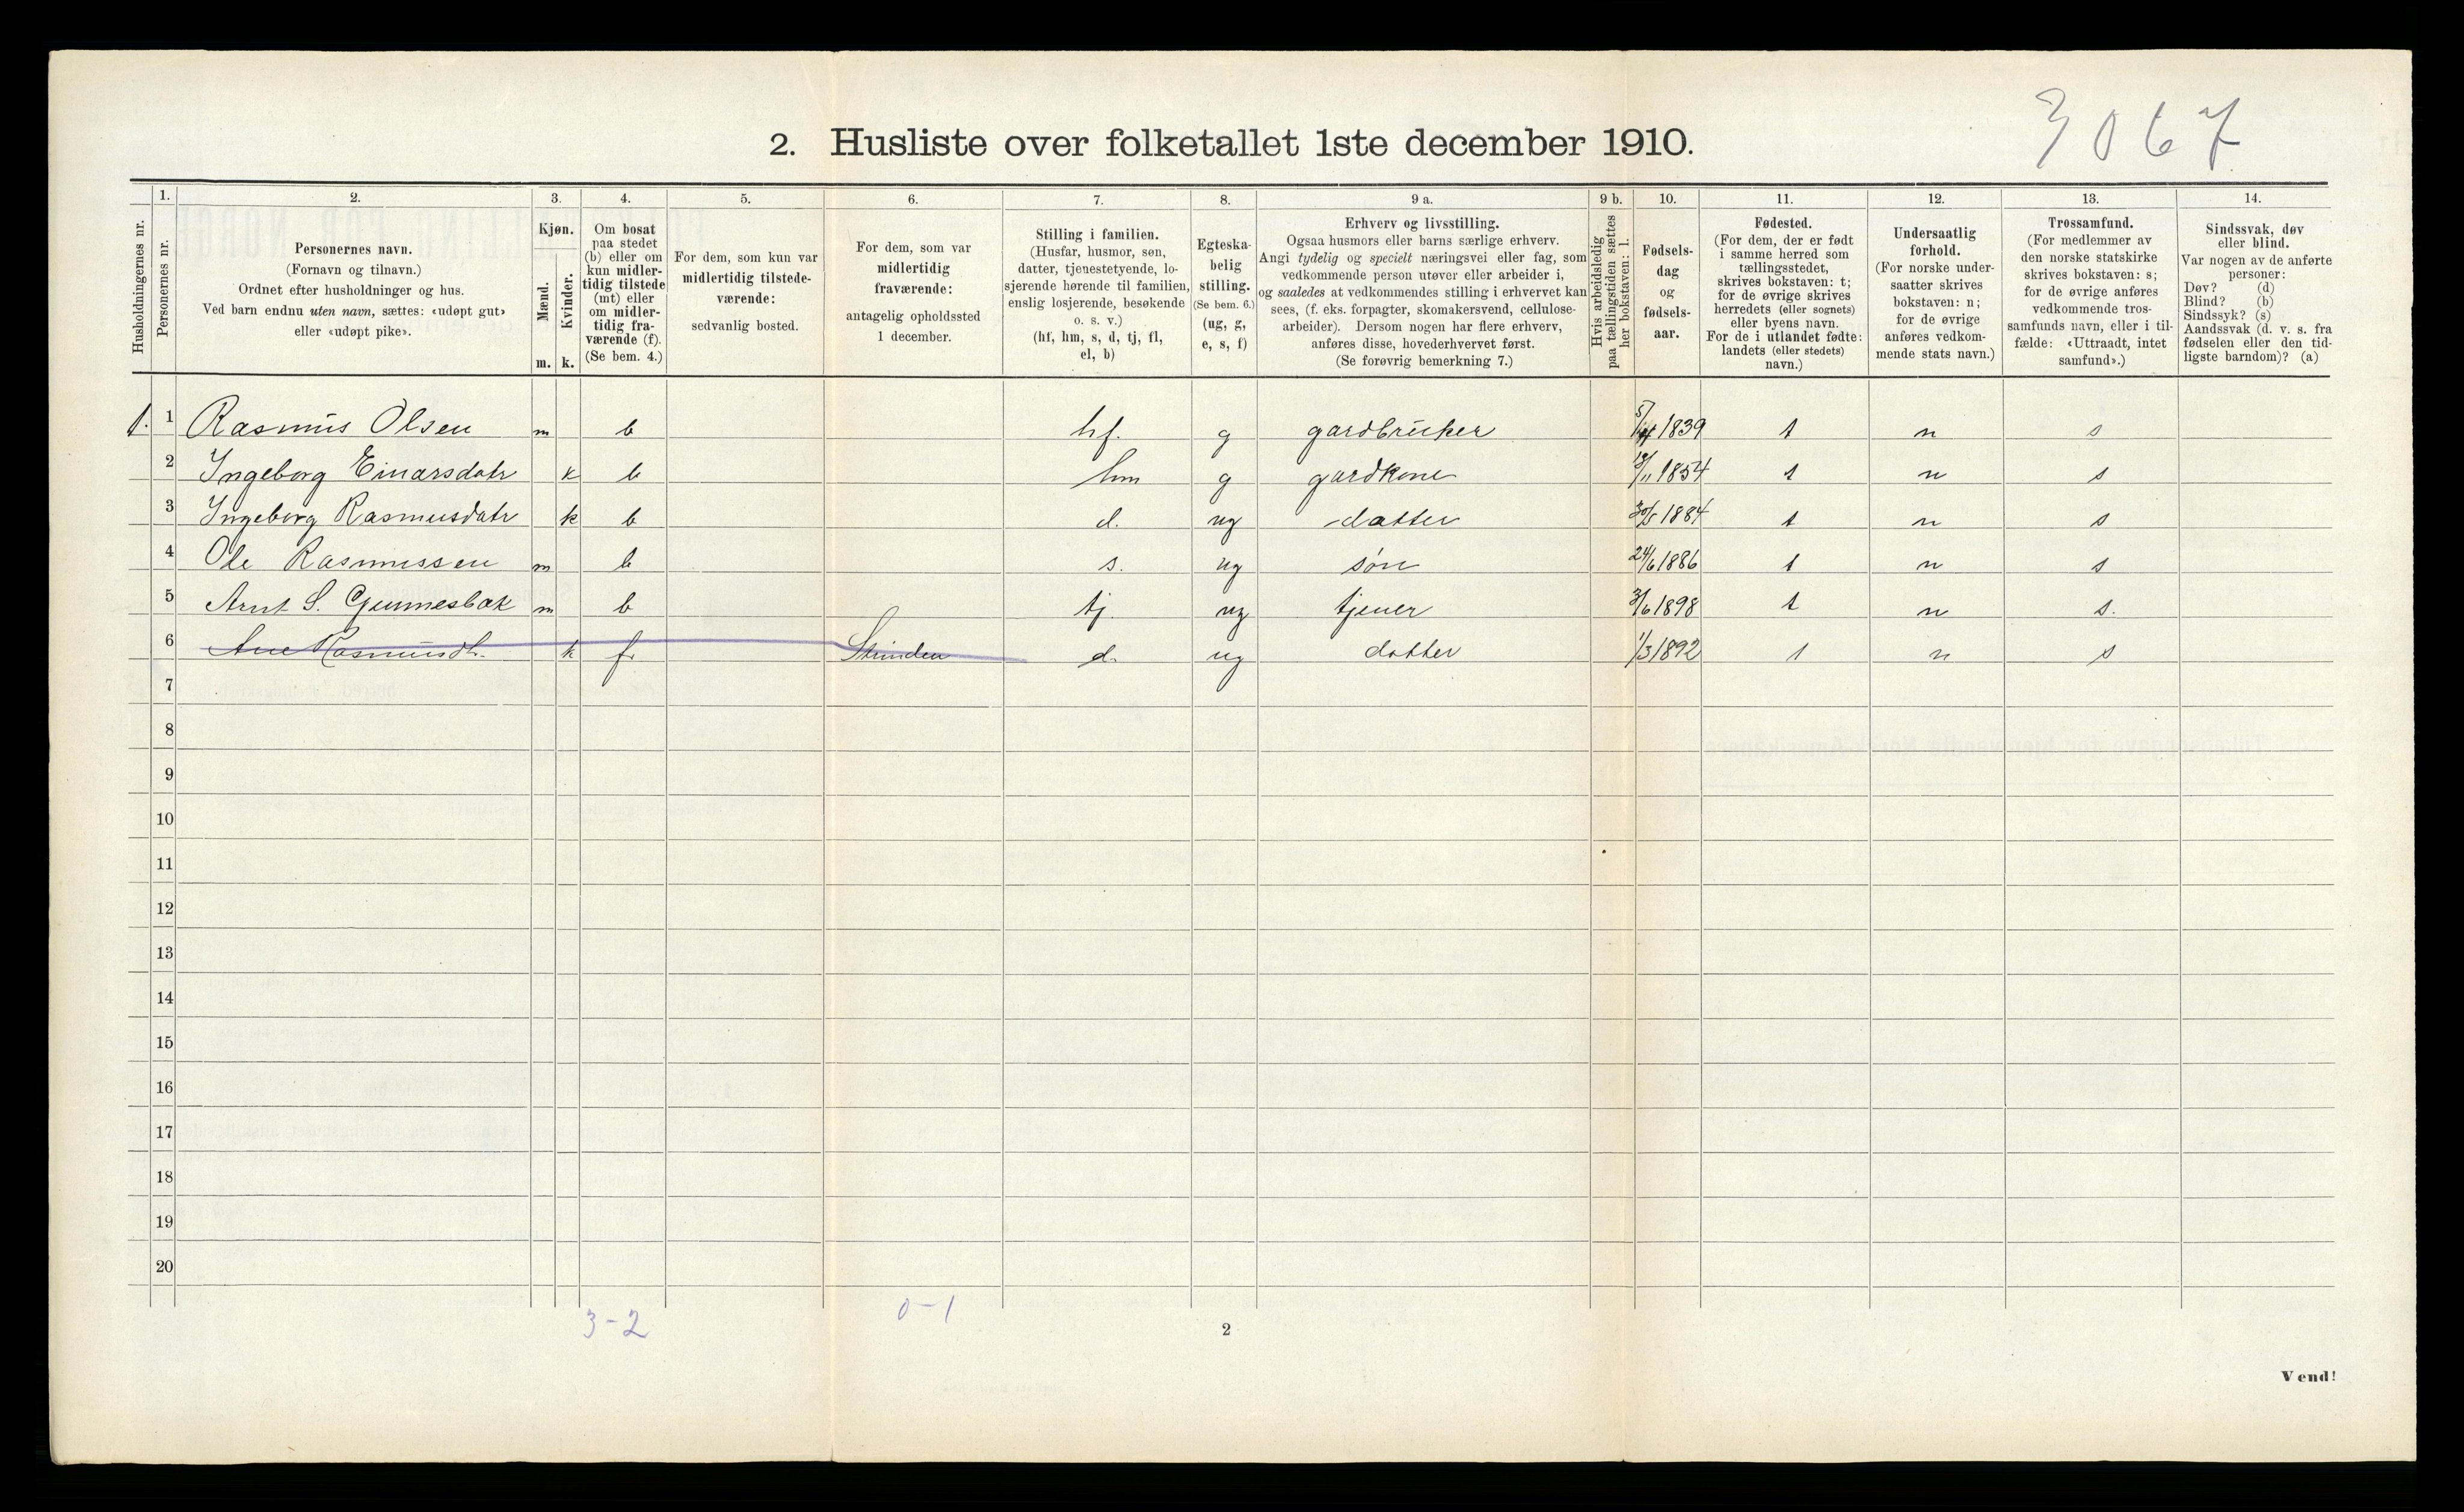 3067
2. Husliste over folketallet 1ste december 1910.
Husholdningernes nr.
1. Personernes nr.
2. Personernes navn. (Fornavn og tilnavn.) Ordnet efter husholdninger og hus. Ved barn endnu uten navn, sættes: «udøpt gut» eller «udøpt pike».
3. Kjøn. Mænd. m. Kvinder. k.
4. Om bosat paa stedet (b) eller om kun midlertidig tilstede (mt) eller om midlertidig fraværende (f). (Se bem. 4.)
5. For dem, som kun var midlertidig tilstedeværende: sedvanlig bosted.
6. For dem, som var midlertidig fraværende: antagelig opholdssted 1 december.
7. Stilling i familien. (Husfar, husmor, søn, datter, tjenestetyende, losjerende hørende til familien, enslig losjerende, besøkende o. s. v.) (hf, hm, s, d, tj, fl, el, b)
8. Egteskabelig stilling. (Se bem. 6.) (ug, g, e, s, f)
9 a. Erhverv og livsstilling. Ogsaa husmors eller barns særlige erhverv. Angi tydelig og specielt næringsvei eller fag, som vedkommende person utøver eller arbeider i, og saaledes at vedkommendes stilling i erhvervet kan sees, (f. eks. forpagter, skomakersvend, cellulosearbeider). Dersom nogen har flere erhverv, anføres disse, hovederhvervet først. (Se forøvrig bemerkning 7.)
9 b. Hvis arbeidsledig paa tællingstiden sættes her bokstaven: l.
10. Fødselsdag og fødselsaar.
11. Fødested. (For dem, der er født i samme herred som tællingsstedet, skrives bokstaven: t; for de øvrige skrives herredets (eller sognets) eller byens navn. For de i utlandet fødte: landets (eller stedets) navn.)
12. Undersaatlig forhold. (For norske undersaatter skrives bokstaven: n; for de øvrige anføres vedkommende stats navn.)
13. Trossamfund. (For medlemmer av den norske statskirke skrives bokstaven: s; for de øvrige anføres vedkommende trossamfunds navn, eller i tilfælde: «Uttraadt, intet samfund».)
14. Sindssvak, døv eller blind. Var nogen av de anførte personer: Døv? (d) Blind? (b) Sindssyk? (s) Aandssvak (d. v. s. fra fødselen eller den tidligste barndom)? (a)
1. 1 Rasmus Olsen m b hf. g gardbruker 1839 t n s
2 Ingeborg Einarsdatr k b hm g gardkone 18/11 1854 t n s
3 Ingeborg Rasmusdatr k b d. ug datter 30/5 1884 t n s
4 Ole Rasmussen m b s. ug søn 24/6 1886 t n s
5 Arnt S. Gunnesbak m b tj. ug tjener 3/6 1898 t n s.
6 Ane Rasmusdt. k f Strinden d. ug datter 1/3 1892 t n s
7
8
9
10
11
12
13
14
15
16
17
18
19
20
3-2
0-1
2
Vend!